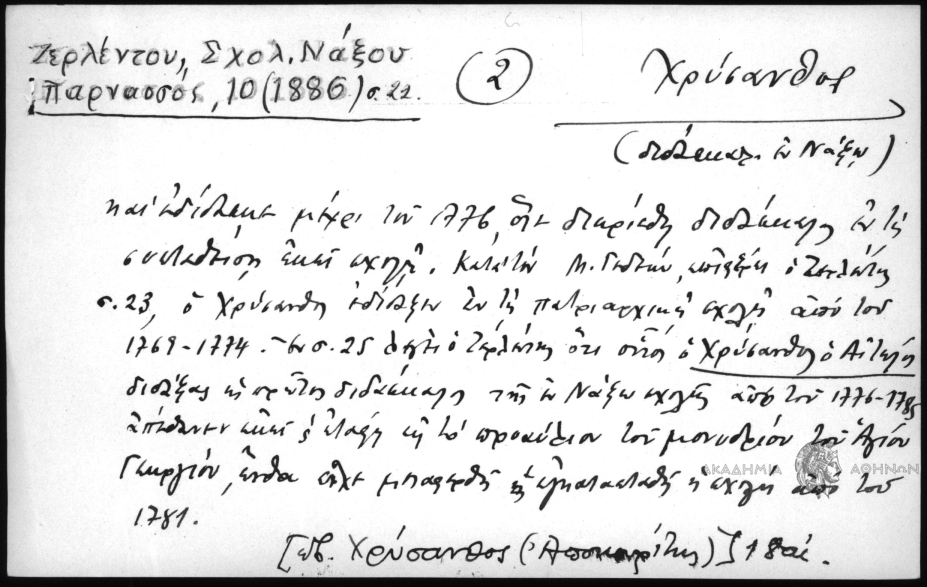 Ζερλέντου, Σχολ. Νάξου
Παρνασσός, 10 (1886) σ. 22.
2
Χρύσανθος
(διδάσκαλ. ἐν Νάξῳ)
καὶ ἐδίδασκε μέχρι τοῦ 1776, ὅτε διωρίσθη διδάσκαλος ἐν τῇ
συσταθείσῃ ἐκεῖ σχολῇ. Κατὰ τὸν Μ. Γεδεών, ὁ Ζερλέντης
σ. 23, ὁ Χρύσανθος ἐδίδαξεν ἐν τῇ πατριαρχικῇ σχολῇ ἀπὸ τοῦ
1769-1774. Ἐν σ. 25 λέγει ὁ Ζερλέντης ὅτι οὗτος ὁ Χρύσανθος ὁ Αἰτωλὸς
διδάξας ὡς πρῶτος διδάσκαλος τῆς ἐν Νάξῳ σχολῆς ἀπὸ τοῦ 1776-1785
ἀπέθανεν ἐκεῖ κ ἐτάφη εἰς τὸ προαύλιον τοῦ μονυδρίου τοῦ Ἁγίου
Γεωργίου, ἔνθα εἶχε μεταφερθῆ κ ἐγκατασταθῆ ἡ σχολὴ ἀπὸ τοῦ
1781.
ΑΚΑΔΗΜΙΑ ΑΘΗΝΩΝ
Χρύσανθος